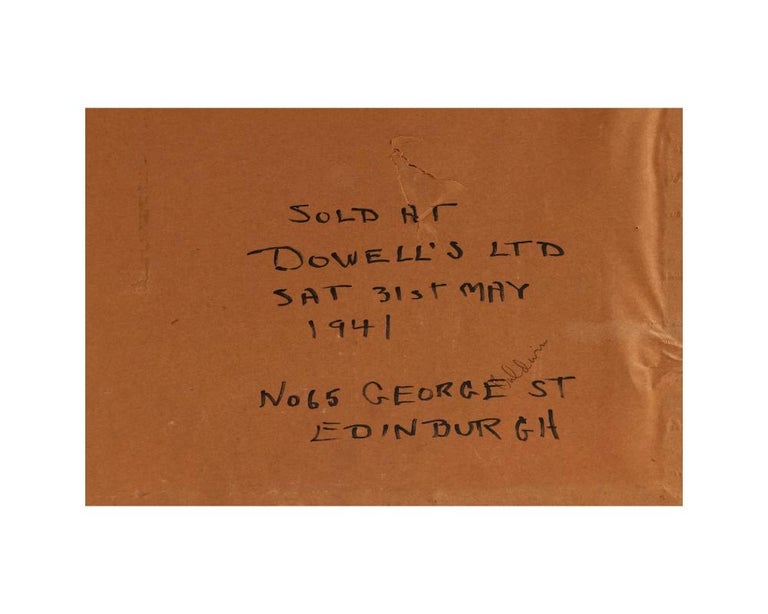 SOLD AT
DOWELL'S LTD
SAT 31st MAY
1941
Baldwin
No65 GEORGE ST
EDINBURGH